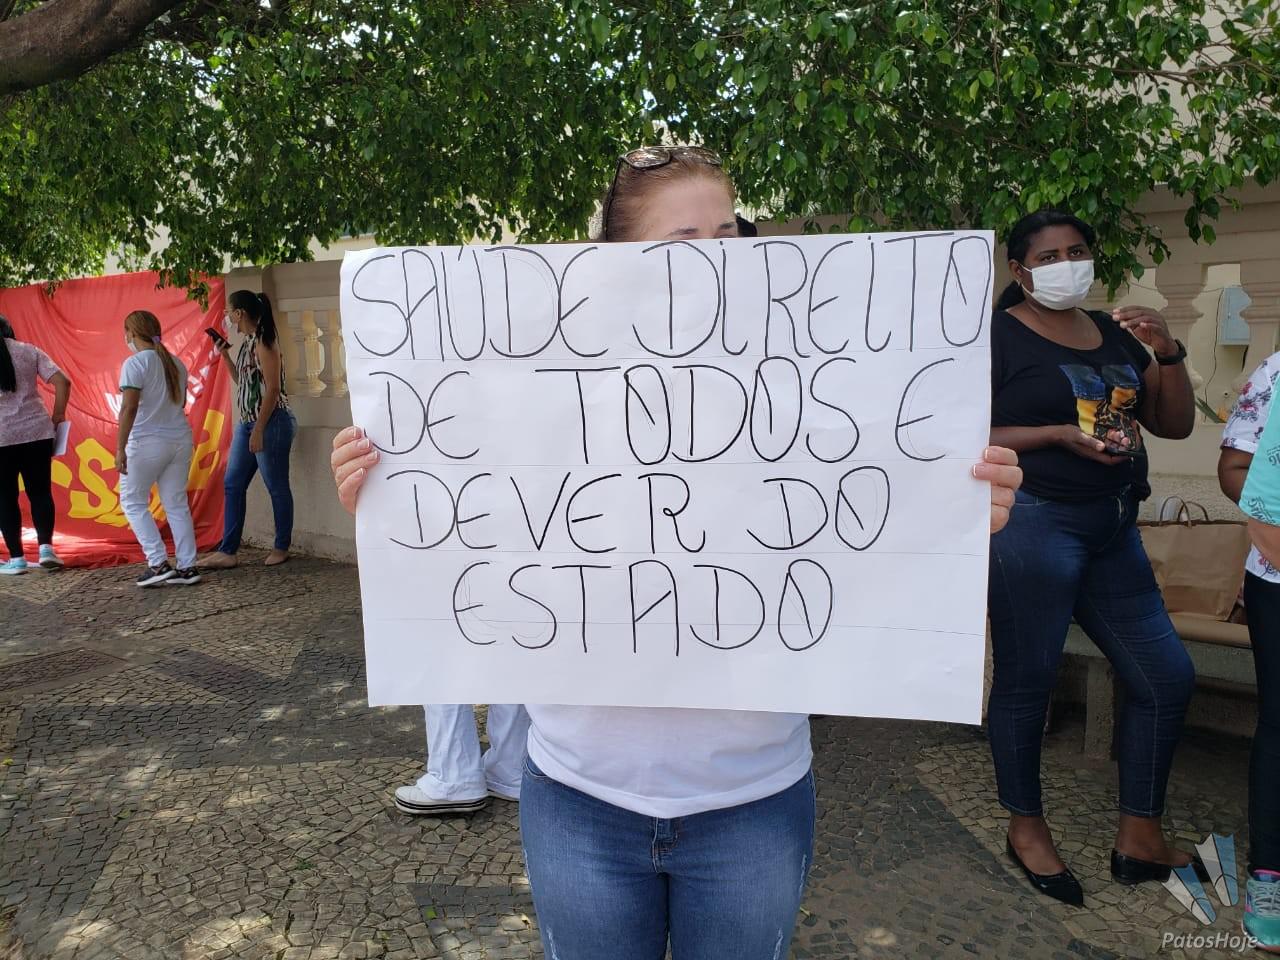 SAÚDE DIREITO
DE TODOS E
DEVER DO
ESTADO
PatosHoje